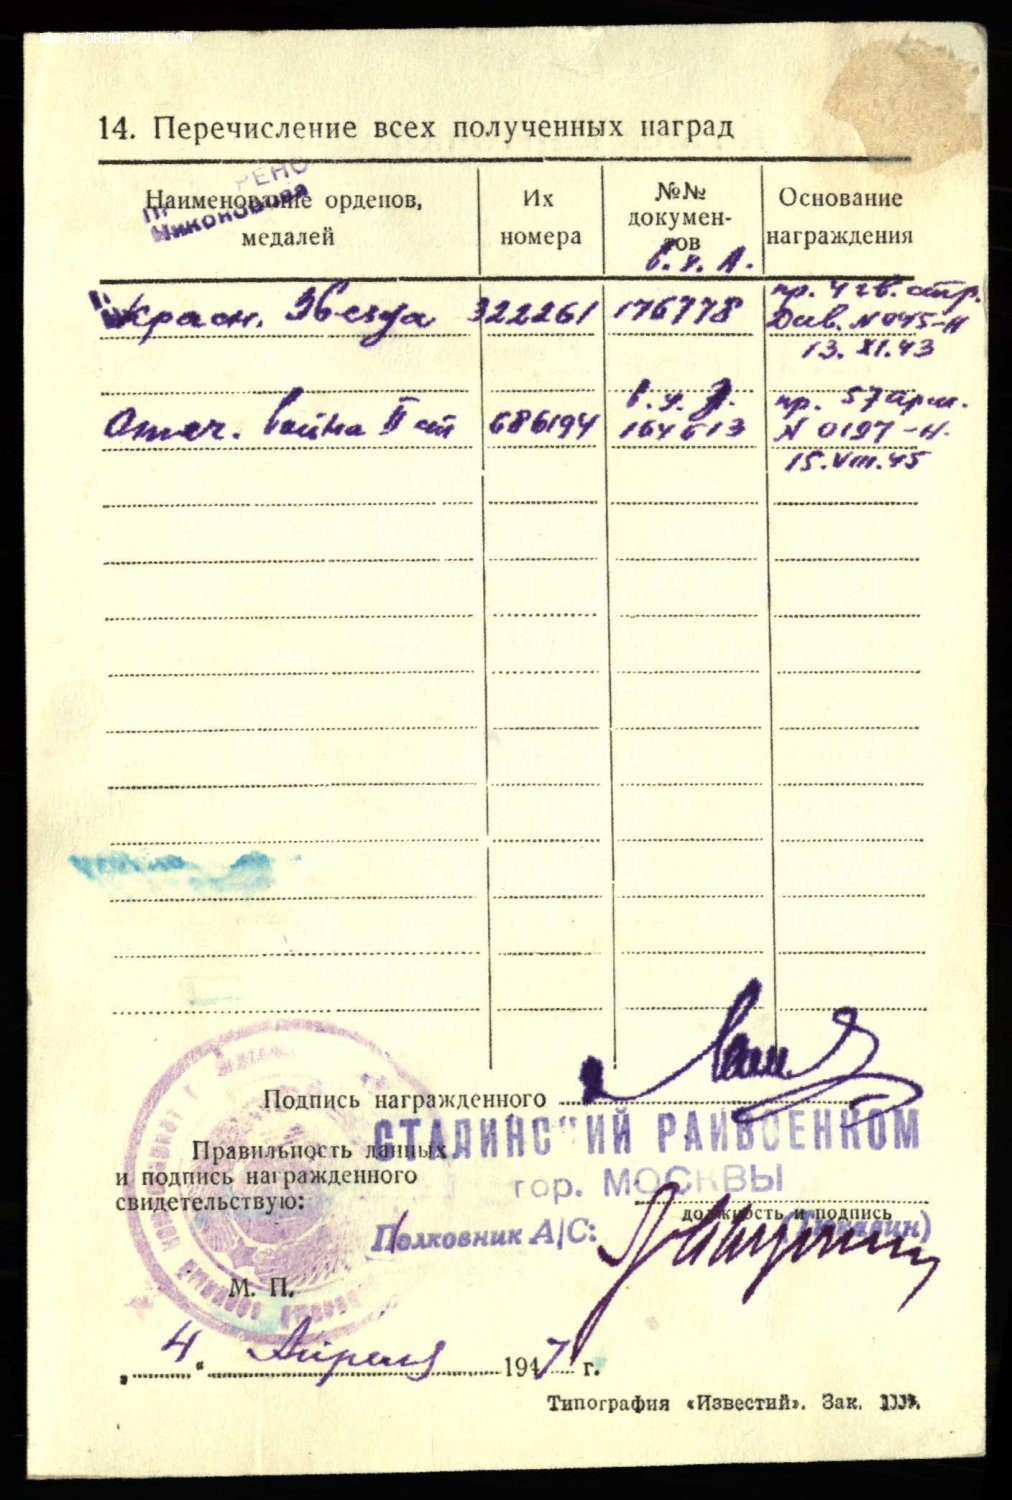 WWW.FORUMS-SU.COM
14. Перечисление всех полученных наград
Наименование орденов, медалей
Их номера
№№ документов
Основание награждения
РЕНО
Никонорова
Красн. Звезда 322261 в. у. А. 176778 пр. 4 гв. стр. Див. N 045-Н 13. XI. 43
Отеч. война II ст 686194 в. у. 164613 пр. 57 арм. N 0197-Н. 15. VIII. 45
Подпись награжденного
СТАЛИНСКИЙ РАЙВОЕНКОМ
гор. МОСКВЫ
Правильность данных
и подпись награжденного
свидетельствую:
должность и подпись
Полковник А/С:
М. П.
„ 4 “ Апреля 1947 г.
Типография «Известий». Зак.